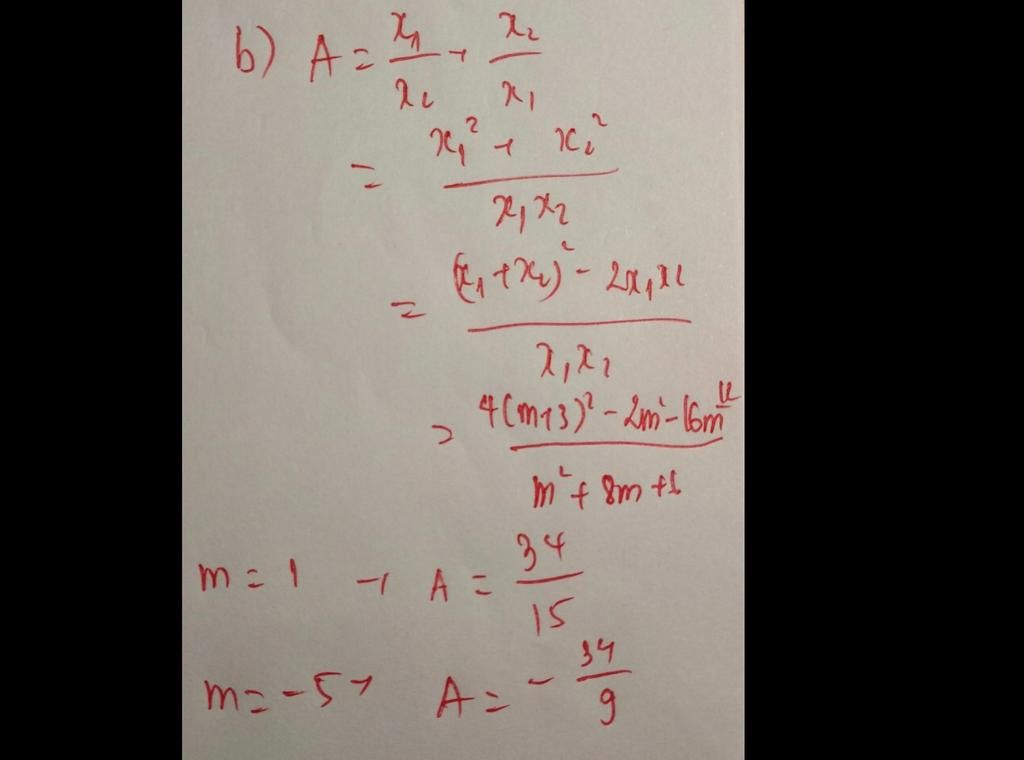 b) A = x₁/x₂ + x₂/x₁
= (x₁² + x₂²)/(x₁x₂)
= ((x₁+x₂)² - 2x₁x₂)/(x₁x₂)
= (4(m+3)² - 2m² - 16m)/(m² + 8m + 6)
m = 1 → A = 34/15
m = -5 → A = -34/9